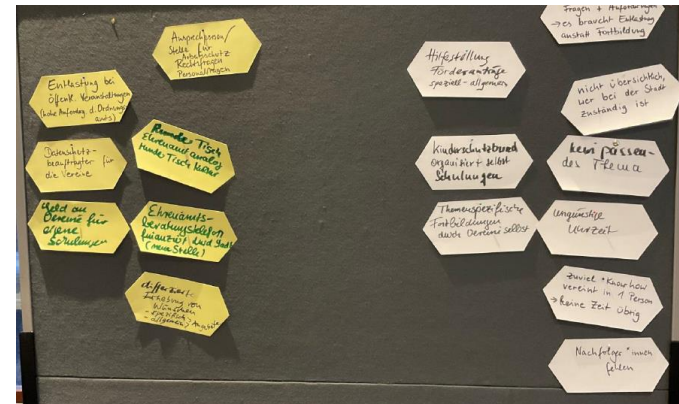 Ansprechperson/
Stelle für
Arbeitsschutz
Rechtsfragen
Personalfragen
Entlastung bei
öffentl. Veranstaltungen
(hohe Anforderg. d. Ordnungs-
amts)
Datenschutz-
beauftragter für
die Vereine
Runder Tisch
Ehrenamt analog
runder Tisch Kultur
Geld an
Vereine für
eigene
Schulungen
Ehrenamts-
beratungstelefon
finanziert durch Stadt
(neue Stelle)
differenzierte
Erhebung von
Wünschen
- spezifisch
- allgemein
Hilfestellung
Förderanträge
speziell - allgemein
Kinderschutzbund
organisiert selbst
Schulungen
Themenspezifische
Fortbildungen
durch Vereine selbst
Fragen + Anforderungen
→ es braucht Entlastung
anstatt Fortbildung
nicht übersichtlich,
wer bei der Stadt
zuständig ist
kein passen-
des Thema
Ungünstige
Uhrzeit
zuviel + Knowhow
vereint in 1 Person
→ keine Zeit übrig
Nachfolger*innen
fehlen